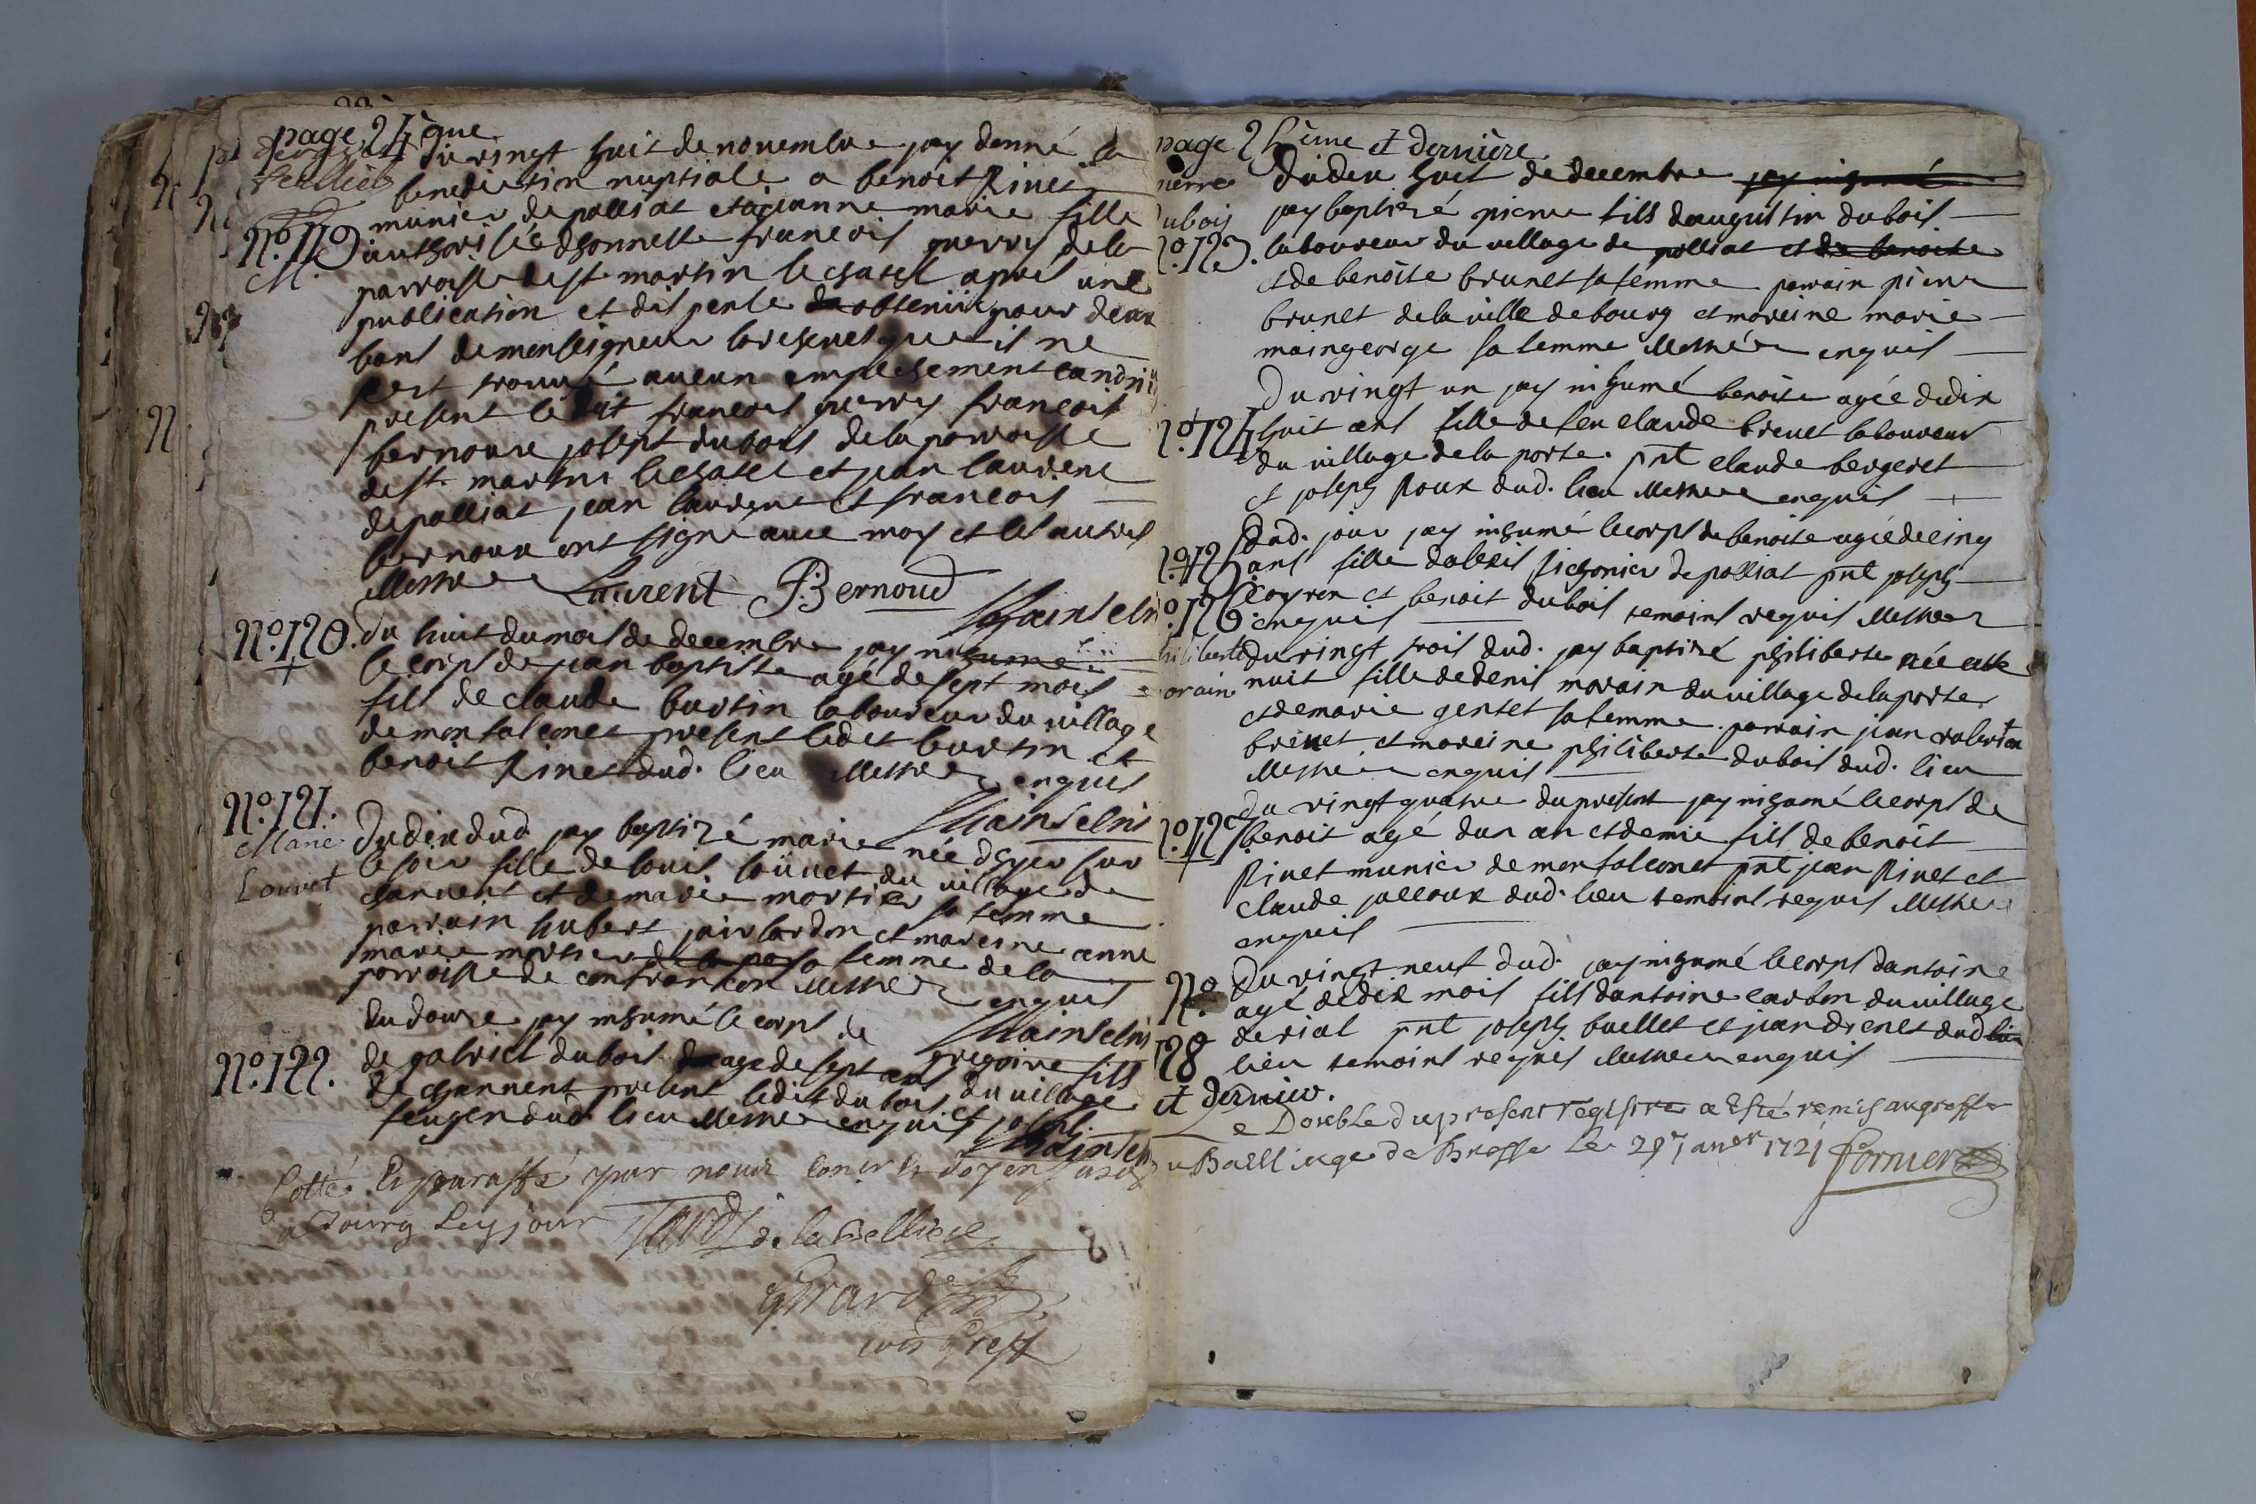 page 24ème
du vingt huit de novembre jay donné la
benediction nuptiale a benoit Rivet
munier de polliat et a jeanne marie fille
N.° 119
M.
authorisée dhonneste françois guerry de la
parroisse de st. martin le chatel apres une
publication et dispense obtenüe pour deux
bans de monseigneur larcheveque il ne
sest trouvé aucun empechement canoni
present le dit françois guerry françois
bernoux joseph dubois de la parroisse
de st. martin le chatel et jean laurent
de polliat jean laurent et françois
bernoux ont signé avec moy et les autres
Laurent F. Bernoud
N.° 120.
du huit du mois de decembre jay inhumé
le corps de jean baptiste agé de sept mois
fils de claude burtin laboureur du village
de monfalconet present ledit burtin et
benoit Rivet dud. lieu enquis
N.° 121.
Marie
Louvet
du dix dud jay baptizé marie née dhyer sur
le soir fille de louis loüvet du village de
charvent et de marie mortier sa femme
parrain hubert jairlordon et mareine anne
marie mortier sa femme de la
parroisse de confrancon enquis
N.° 122.
du douze jay inhumé le corps de gregoire fils
de gabriel dubois agé de sept ans du village
de charvent present ledit dubois et joseph
feugen dud. lieu enquis
Cotté et paraffé par nous
a Bourg Tardy de la Belliere
Girard
page 25ème et dernière
pierre
dubois
N.° 123.
du dix huit de decembre jay inhumé
jay baptizé pierre fils daugustin dubois
laboureur du village de polliat et de benoite
et de benoite brunet sa femme parrain pierre
brunet de la ville de bourg et mareine marie
maingeorge sa femme enquis
N.° 124
du vingt un jay inhumé benoite agée de dix
huit ans fille de feu claude brevet laboureur
du village de la porte. pnt claude bergeret
et joseph Roux dud. lieu enquis
N.° 125
dud. jour jay inhumé le corps de benoite agée de cinq
ans fille dalexis pichonier de polliat pnt joseph
coyron et benoit dubois temoins requis
enquis
N.° 126
philiberte
morain
du vingt trois dud. jay baptizé philiberte née cette
nuit fille de denis morain du village de la porte
et de marie gentet sa femme. parrain jean robert
brevet et mareine philiberte dubois dud. lieu
enquis
N.° 127
du vingt quatre du present jay inhumé le corps de
benoit agé dun an et demie fils de benoit
Rivet munier de monfalconet pnt jean Rivet et
claude jolloux dud. lieu temoins requis
enquis
N.°
128
et dernier.
du vingt neuf dud. jay inhumé le corps dantoine
agé de dix mois fils dantoine carbon du village
de rial pnt joseph buellet et jean drenet dud
lieu temoins requis enquis
Double du present registre a Esté remis au greffe
du Bailliage de Bresse le 29 janer 1721 Fornier